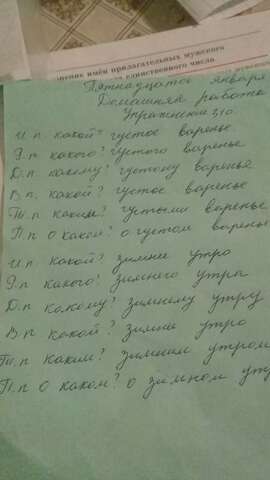 нение имён прилагательных мужского
единственного числа
Пятнадцатое января
Домашняя работа
Упражнение 310.
И.п. какой? густое варенье
Р.п. какого? густого варенье
Д.п. какому? густому варенья
В.п. какой? густое варенье
Т.п. каким? густыми варенье
П.п О каком? о густом варенье
И.п. какой? зимние утро
Р.п. какого? зимнего утра
Д.п. какому? зимнему утру
В.п какой? зимние утро
Т.п. каким? зимним утром
П.п О каком? о зимном ут